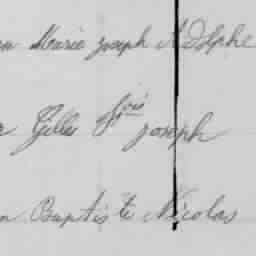 n Marie joseph Adolphe
r Gilles fois joseph
n Baptiste Nicolas